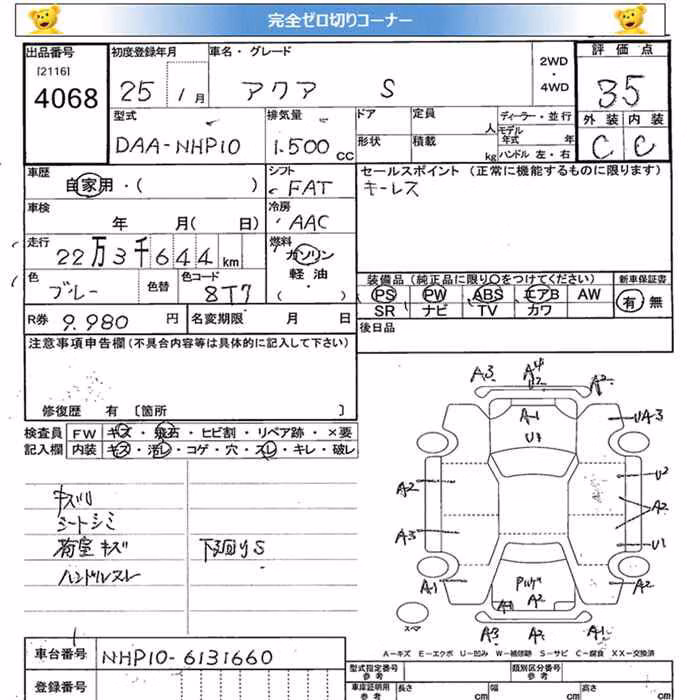 完全ゼロ切りコーナー
出品番号
[2116]
4068
初度登録年月
25 1月
車名・グレード
アクア S
2WD
・
4WD
評価点
3.5
外装 内装
C C
型式
DAA-NHP10
排気量
1.500 CC
ドア
定員
人
形状
積載
kg
ディーラー・並行
モデル
年式 年
ハンドル 左・右
車歴
自家用・( )
シフト
FAT
セールスポイント (正常に機能するものに限ります)
キーレス
車検
年 月( 日)
冷房
AAC
走行
22万3千644km
燃料
ガソリン
軽油
・( )
色
ブルー
色替
色コード
8T7
装備品(純正品に限り○をつけてください)
新車保証書
PS PW ABS エアB AW
SR ナビ TV カワ
有・無
R券 9.980 円
名変期限 月 日
後日品
注意事項申告欄(不具合内容等は具体的に記入して下さい)
修復歴 有 [箇所 ]
検査員 FW キズ・飛石・ヒビ割・リペア跡・×要
記入欄 内装 キズ・汚レ・コゲ・穴・スレ・キレ・破レ
キズU
シートシミ
荷室キズ
下回りS
ハンドルスレ
A3 A4 U2 A2
A1
U1
UA3
A2
U2
A2
A3
U1
A1
A2
A1 A2
A3 A2 A1
スペア
A-キズ E-エクボ U-凹み W-補修跡 S-サビ C-腐食 XX-交換済
車台番号
NHP10-6131660
登録番号
型式指定番号
参考
類別区分番号
参考
車庫証明用
参考
長さ cm
幅 cm
高さ cm